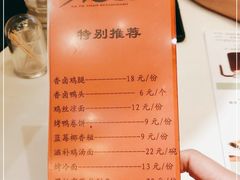 特别推荐
香卤鸡腿——18元/份
香卤鸭头——6元/个
鸡丝凉面——12元/份
烤鸭卷饼——9元/份
蓝莓椰香糕——9元/份
滋补鸡汤面——22元/碗
烤冷面——13元/份